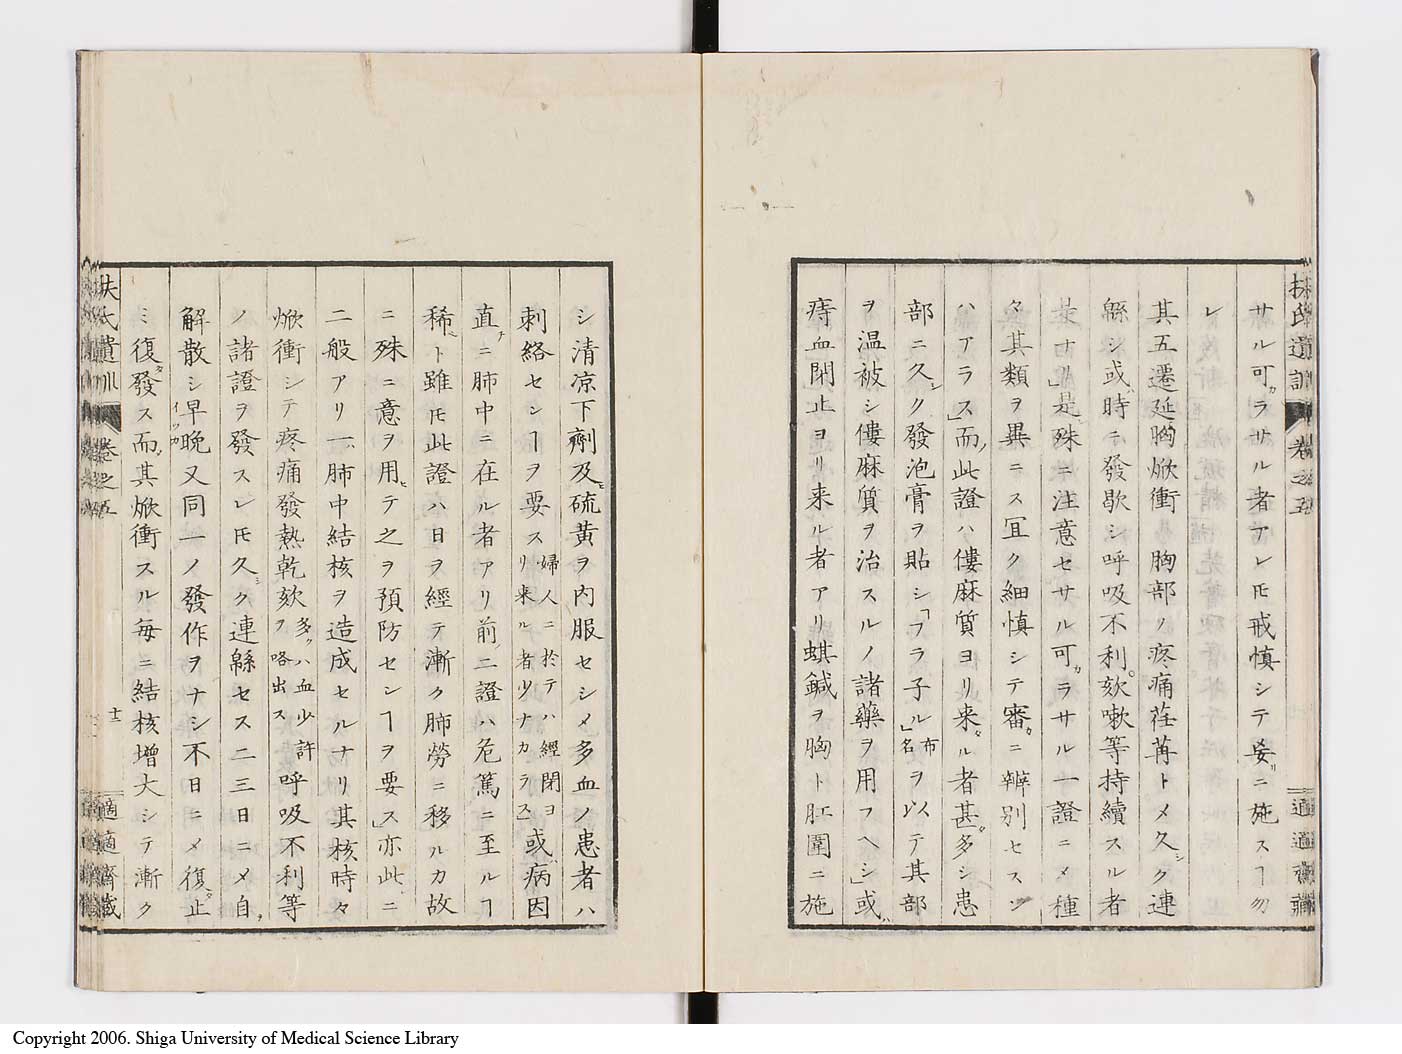 扶氏遺訓 卷之五
適適齋藏
サル可カラサル者アレ𪜈戒愼シテ妄リニ施スヿ勿
レ
其五遷延胸焮衝 胸部ノ疼痛荏苒トメ久シク連
緜シ或ハ時ニ發歇シ呼吸不利。欬嗽等持續スル者
是ナリ」是レ殊ニ注意セサル可カラサル一證ニメ種
々其類ヲ異ニス宜ク細愼シテ審カニ辨別セスン
ハアラス」而ノ此證ハ僂麻質ヨリ来タル者甚タ多シ患
部ニ久シク發泡膏ヲ貼シ「フラ子ル」布名ヲ以テ其部
ヲ温被シ僂麻質ヲ治スルノ諸藥ヲ用フヘシ」或ハ
痔血閉止ヨリ来ル者アリ蜞鍼ヲ胸ト肛圍ニ施
シ清凉下劑及ヒ硫黄ヲ内服セシメ多血ノ患者ハ
刺絡セシヿヲ要ス婦人ニ於テハ經閉ヨリ来ル者少ナカラス或ハ病因
直チニ肺中ニ在ル者アリ前ノ二證ハ危篤ニ至ルヿ
稀レト雖𪜈此證ハ日ヲ經テ漸ク肺勞ニ移ルカ故
ニ殊ニ意ヲ用ヒテ之ヲ預防センヿヲ要ス」亦此レニ
二般アリ一ハ肺中結核ヲ造成セルナリ其核時々
焮衝シテ疼痛發熱乾欬多クハ血少許ヲ咯出ス呼吸不利等
ノ諸證ヲ發スレ𪜈久シク連緜セス二三日ニメ自ラ
解散シ早晩イツカ又同一ノ發作ヲナシ不日ニメ復タ止
ミ復タ發ス而ノ其焮衝スル毎ニ結核增大シテ漸ク
扶氏遺訓 卷之五
十二
適適齋藏
Copyright 2006. Shiga University of Medical Science Library